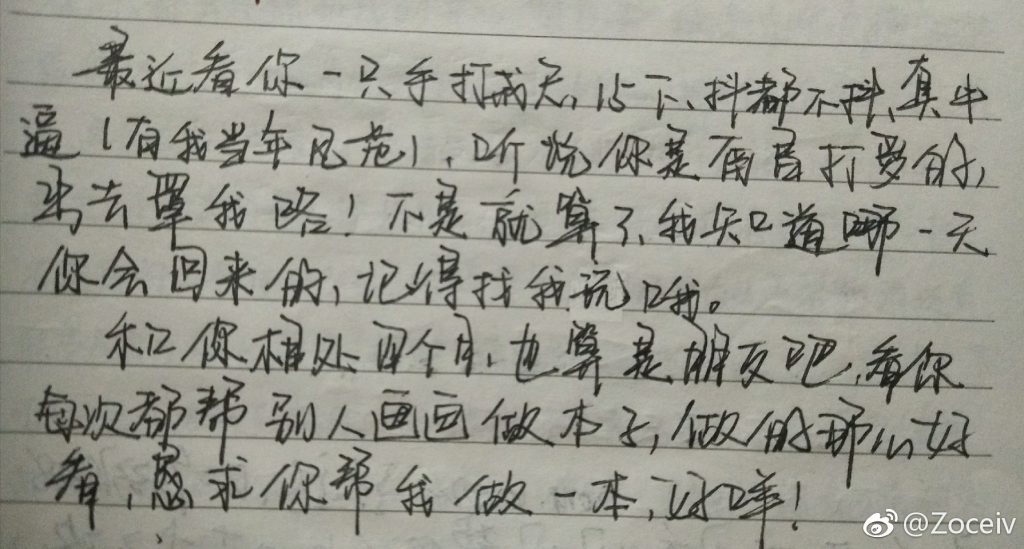 最近看你一只手打戒尺,15下、抖都不抖,真牛
逼(有我当年风范),听说你是有肩打罗的,
出去罩我咯!不是就算了,我知道哪一天
你会回来的,记得找我玩哦。
和你相处四个月,也算是朋友吧,看你
每次都帮别人画画做本子,做的那么好
看,恳求你帮我做一本,好咩!
@Zoceiv